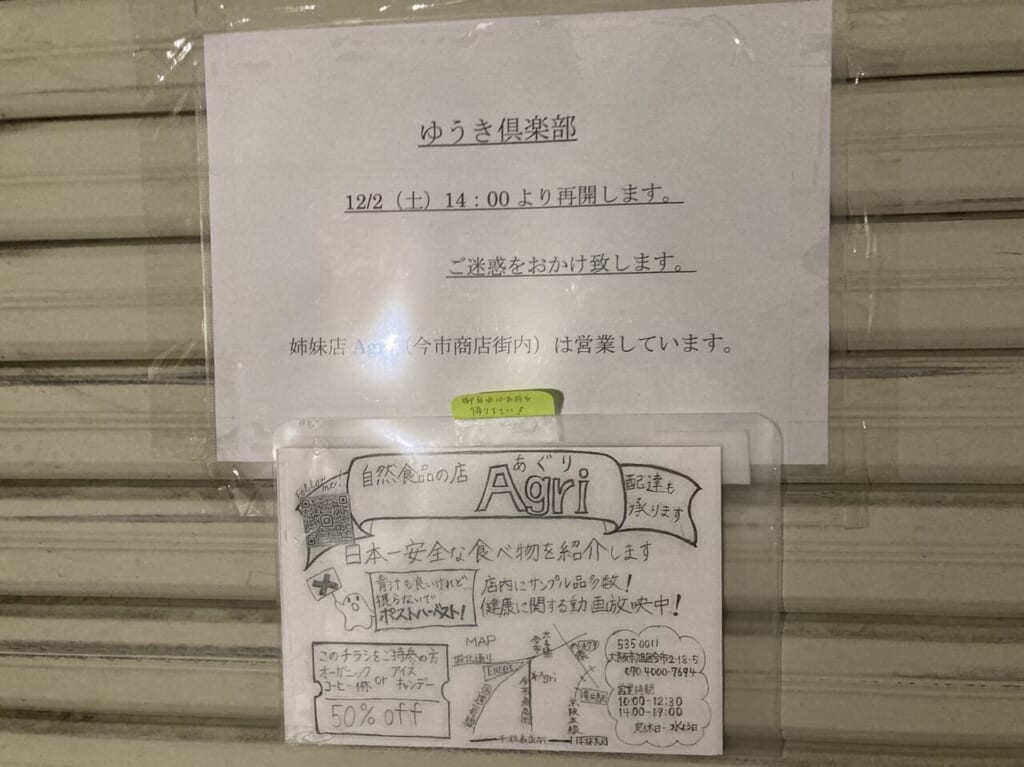 ゆうき倶楽部
12/2（土）14：00より再開します。
ご迷惑をおかけ致します。
姉妹店 Agri（今市商店街内）は営業しています。
御自由にお持ち
帰り下さい!
Follow me!
自然食品の店
あぐり
Agri
配達も
承ります
日本一安全な食べ物を紹介します
青汁も良いけれど…
摂らないで
ポストハーベスト!
店内にサンプル品多数!
健康に関する動画放映中!
このチラシをご持参の方
オーガニック or アイス
コーヒー1杯 キャンデー
50% off
MAP
ENEOS
Agri
今市商店街
京阪本線
千林商店街
535 0011
大阪市旭区今市2-18-5
070-4000-7694
営業時間
10:00-12:30
14:00-19:00
定休日-水曜日